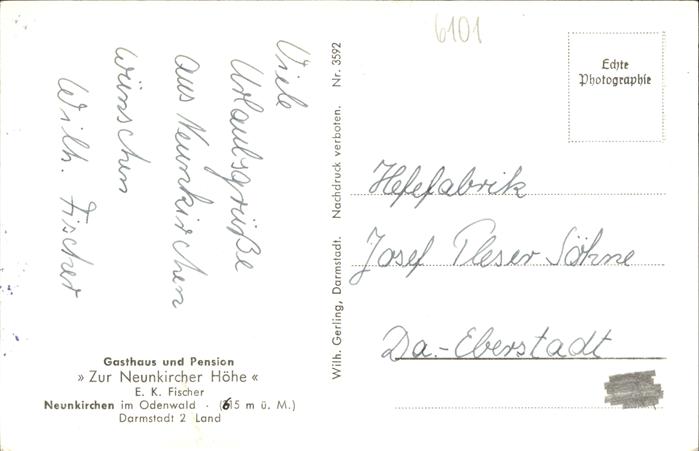 6101
Viele
Urlaubsgrüße
aus Neunkirchen
wünschen
Wilh. Fischer
Gasthaus und Pension
» Zur Neunkircher Höhe «
E. K. Fischer
Neunkirchen im Odenwald · (615 m ü. M.)
Darmstadt 2 Land
Wilh. Gerling, Darmstadt. Nachdruck verboten. Nr. 3592
Echte
Photographie
Hefefabrik
Josef Pleser Söhne
Da.-Eberstadt